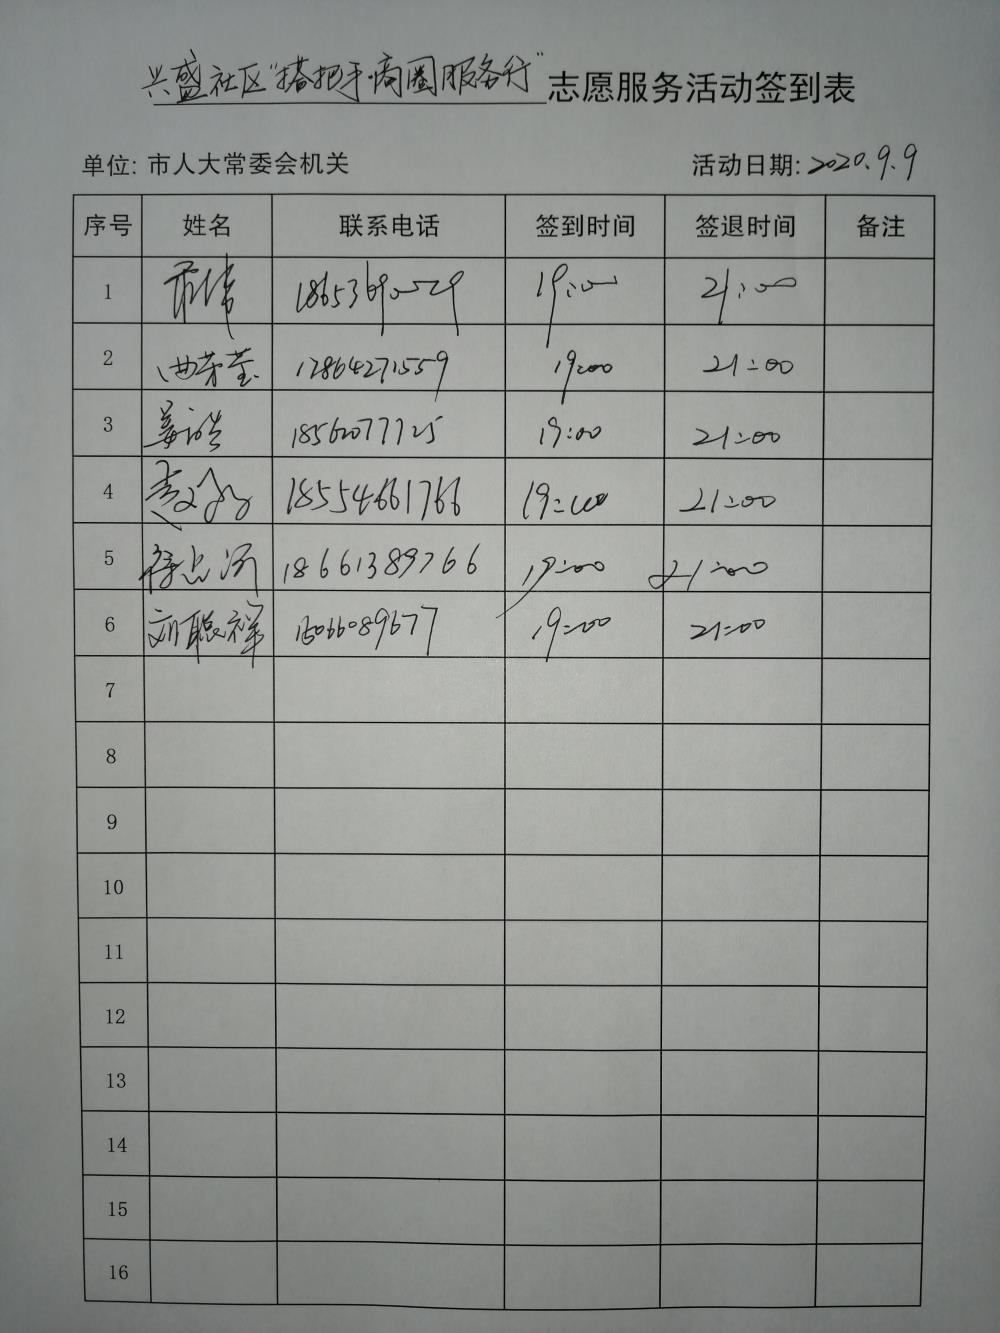 兴盛社区“搭把手·商圈服务行”志愿服务活动签到表
单位: 市人大常委会机关 活动日期: 2020.9.9
序号 姓名 联系电话 签到时间 签退时间 备注
1 19:00 21:00
2 曲荣莹 12864271559 19:00 21:00
3 姜浩 18562077725 19:00 21:00
4 18554661766 19:00 21:00
5 18661389766 19:00 21:00
6 刘聪祥 15066089677 19:00 21:00
7
8
9
10
11
12
13
14
15
16